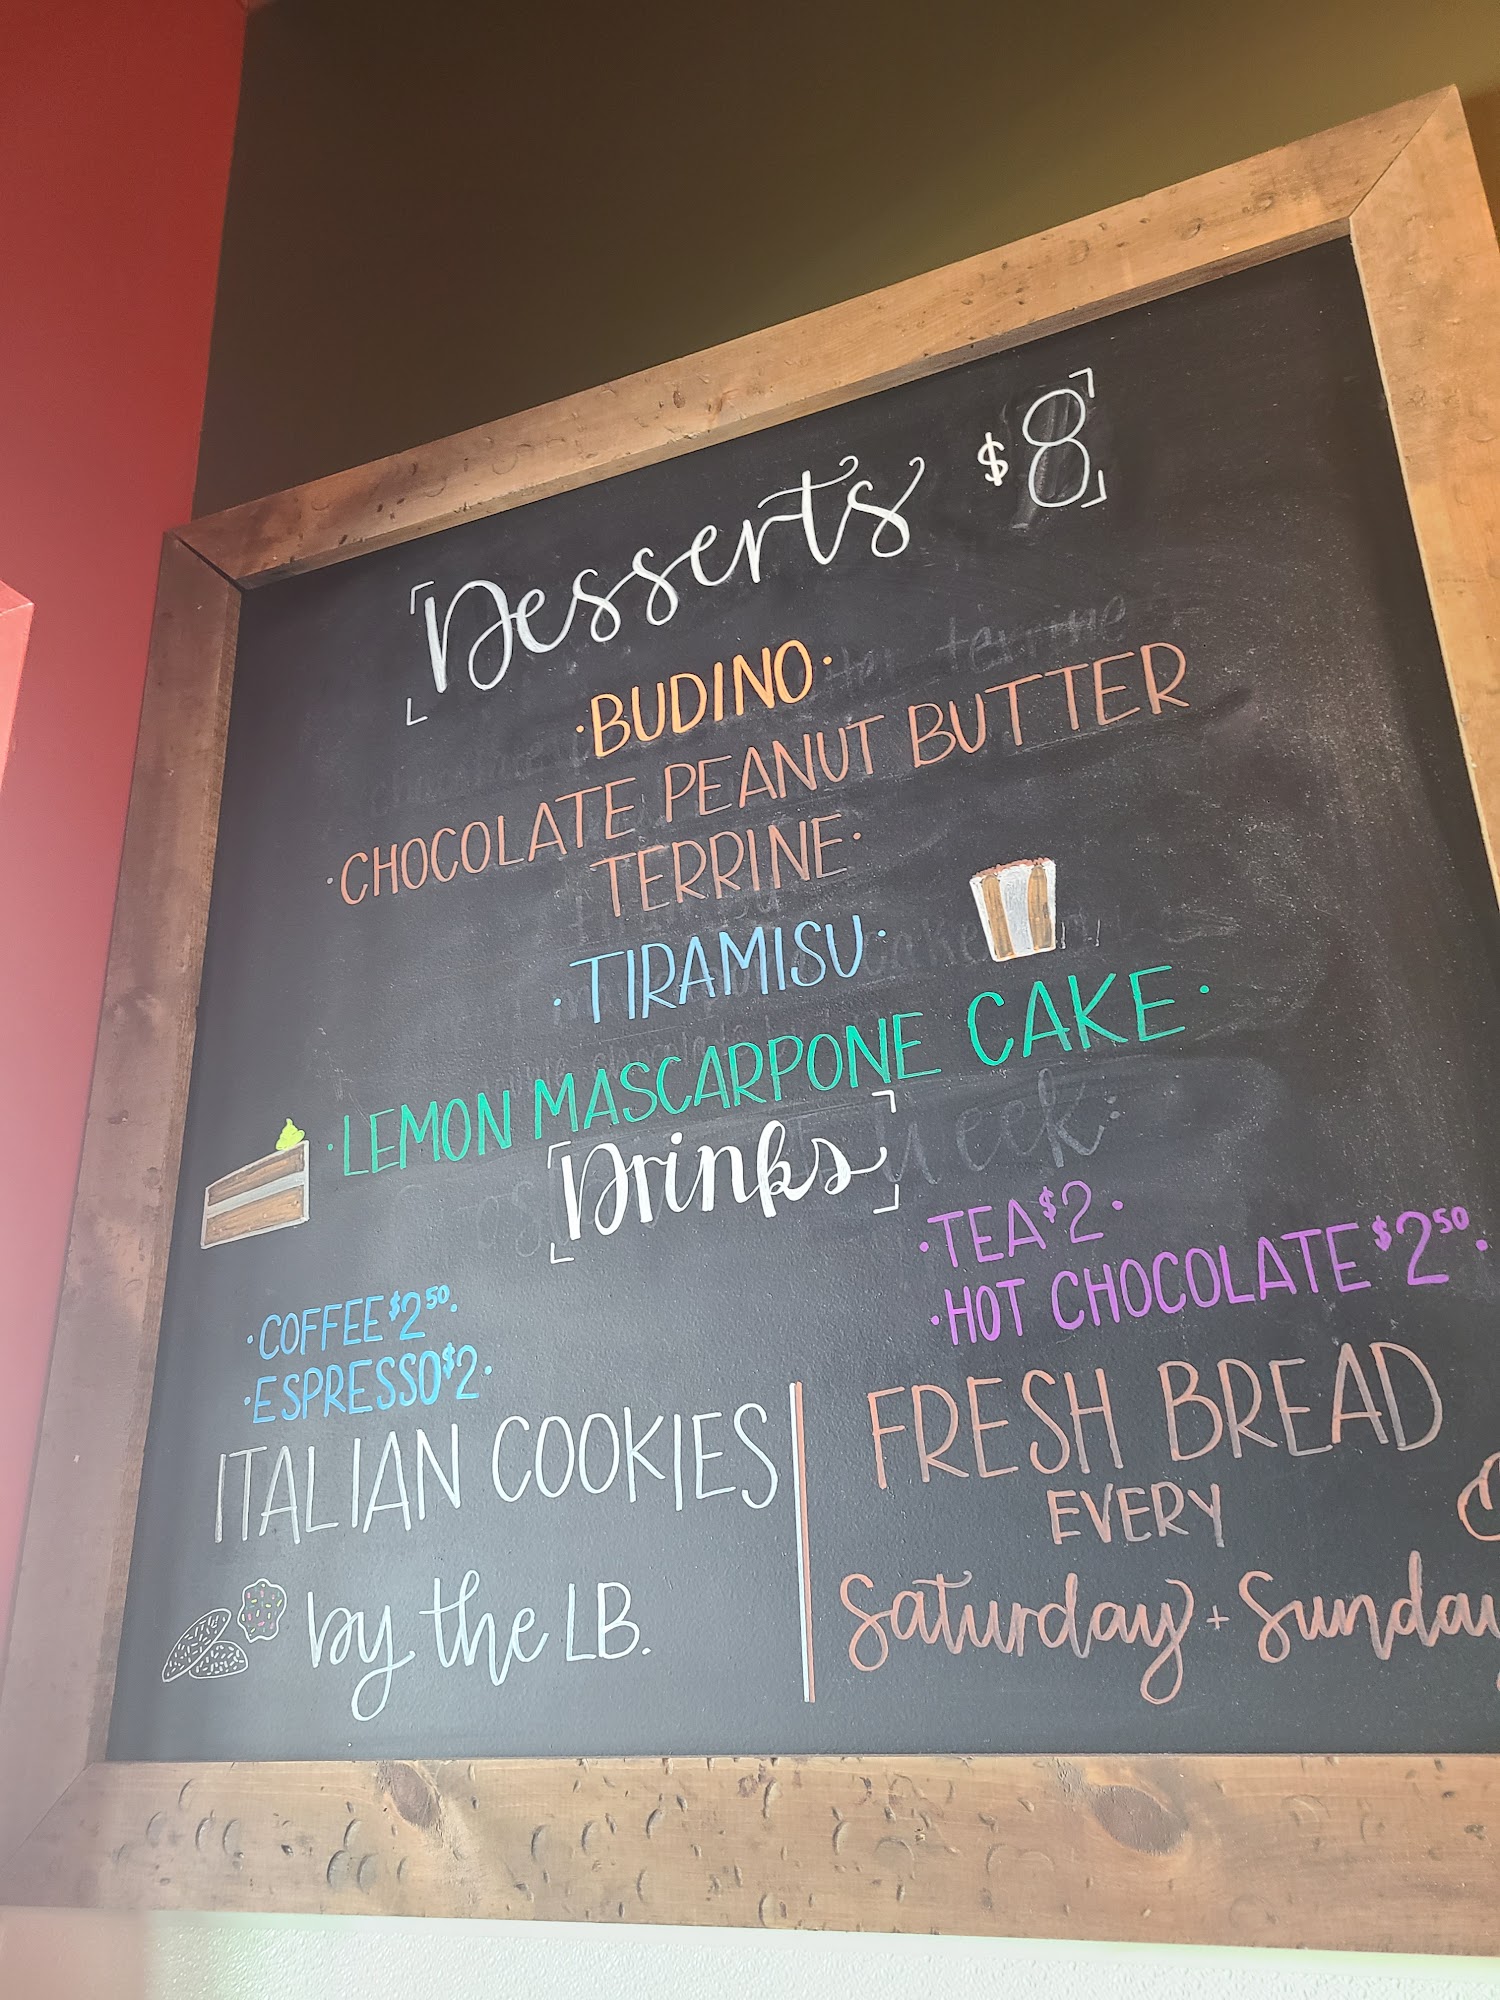 Desserts $8
·BUDINO·
·CHOCOLATE PEANUT BUTTER
TERRINE·
·TIRAMISU·
·LEMON MASCARPONE CAKE·
Drinks
·COFFEE $2⁵⁰·
·ESPRESSO $2·
·TEA $2·
·HOT CHOCOLATE $2⁵⁰·
ITALIAN COOKIES
by the LB.
FRESH BREAD
EVERY
Saturday + Sunday